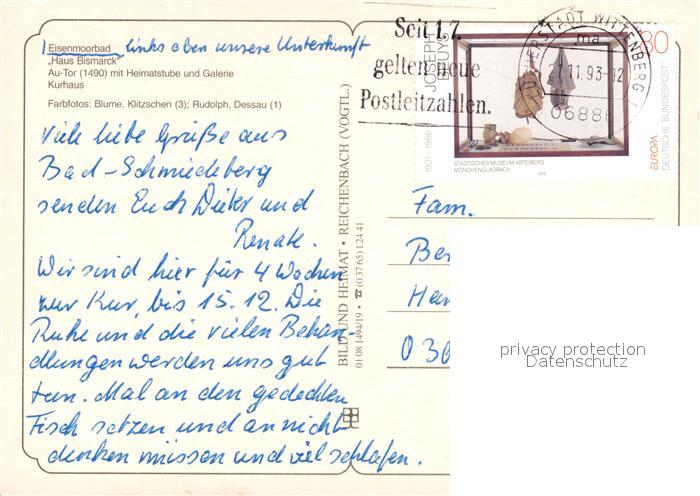 Eisenmoorbad links oben unsere Unterkunft
„Haus Bismarck"
Au-Tor (1490) mit Heimatstube und Galerie
Kurhaus
Farbfotos: Blume, Klitzschen (3); Rudolph, Dessau (1)
Viele liebe Grüße aus
Bad-Schmiedeberg
senden Euch Dieter und
Renate.
Wir sind hier für 4 Wochen
zur Kur, bis 15.12. Die
Ruhe und die vielen Behan-
dlungen werden uns gut
tun. Mal an den gedeckten
Tisch setzen und an nicht
denken müssen und viel schlafen.
BILD UND HEIMAT • REICHENBACH (VOGTL.)
01 08 1494/19 • ☎ (0 37 65) 1 24 41
Seit 1.7.
gelten neue
Postleitzahlen.
JOSEPH
BEUYS
1921 - 1986
80
LUTHERSTADT WITTENBERG 1
ma
21.11.93-92
06886
STÄDTISCHES MUSEUM ABTEIBERG
MÖNCHENGLADBACH
1993
EUROPA
DEUTSCHE BUNDESPOST
Fam.
Be
Ha
0 30
privacy protection
Datenschutz